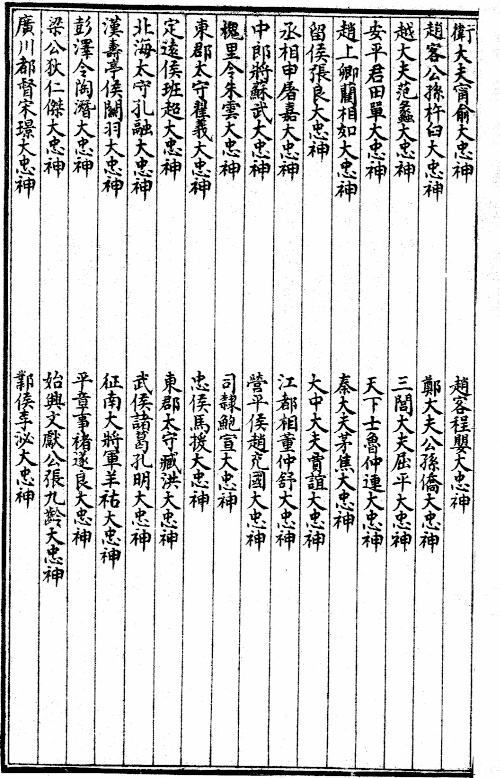 衛大夫甯俞大忠神
趙客程嬰大忠神
趙客公孫杵臼大忠神
鄭大夫公孫僑大忠神
越大夫范蠡大忠神
三閭大夫屈平大忠神
安平君田單大忠神
天下士魯仲連大忠神
趙上卿藺相如大忠神
秦大夫茅焦大忠神
留侯張良大忠神
大中大夫賈誼大忠神
丞相申屠嘉大忠神
江都相董仲舒大忠神
中郎將蘇武大忠神
營平侯趙充國大忠神
槐里令朱雲大忠神
司隸鮑宣大忠神
東郡太守翟義大忠神
忠侯馬援大忠神
定遠侯班超大忠神
東郡太守臧洪大忠神
北海太守孔融大忠神
武侯諸葛孔明大忠神
漢壽亭侯關羽大忠神
征南大將軍羊祜大忠神
彭澤令陶潛大忠神
平章事褚遂良大忠神
梁公狄仁傑大忠神
始興文獻公張九齡大忠神
廣川都督宋璟大忠神
鄴侯李泌大忠神